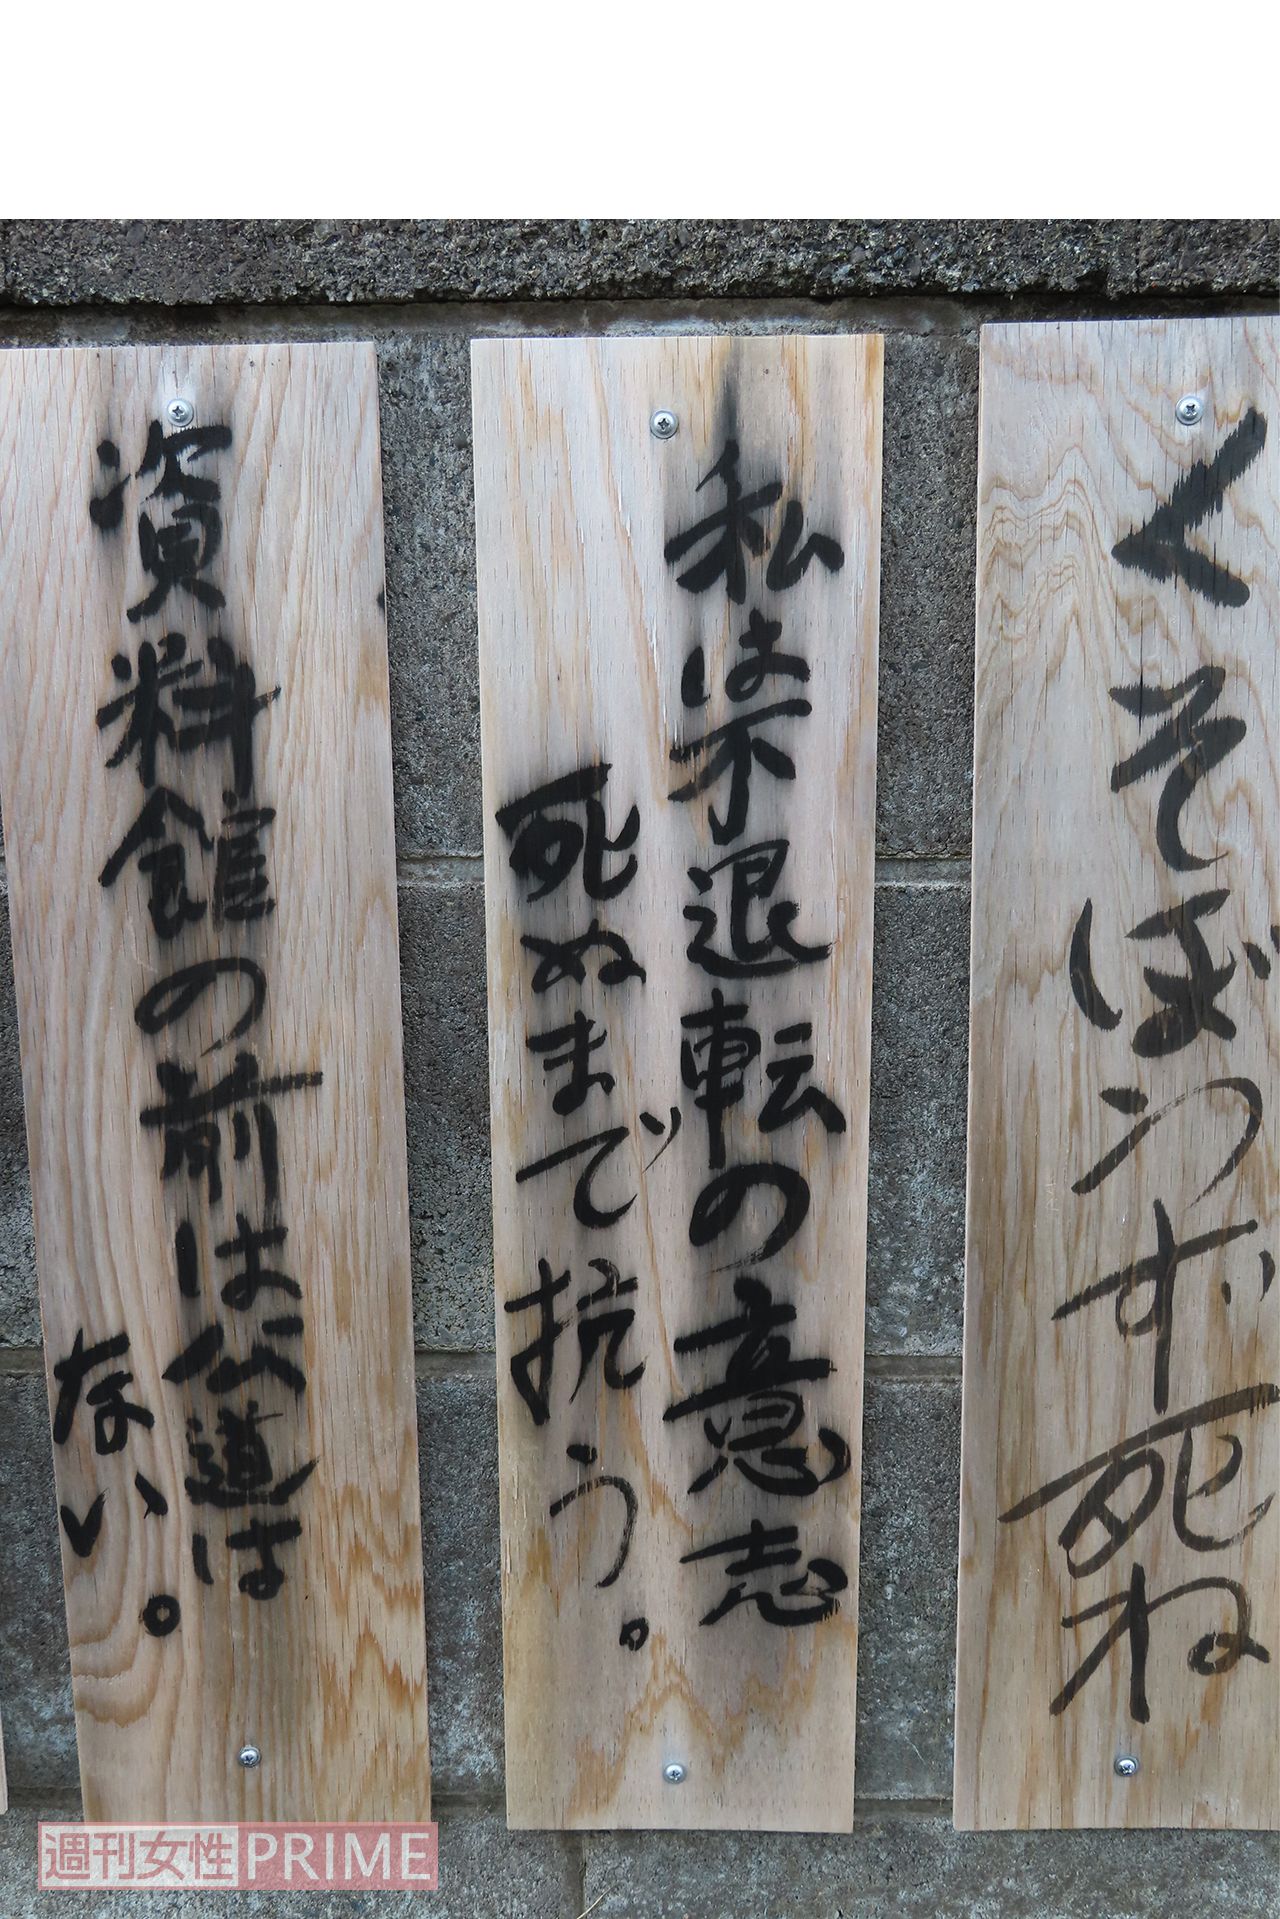 くそぼうず死ね
私は不退転の意志
死ぬまで抗う。
資料館の前は公道は
ない。
週刊女性PRIME